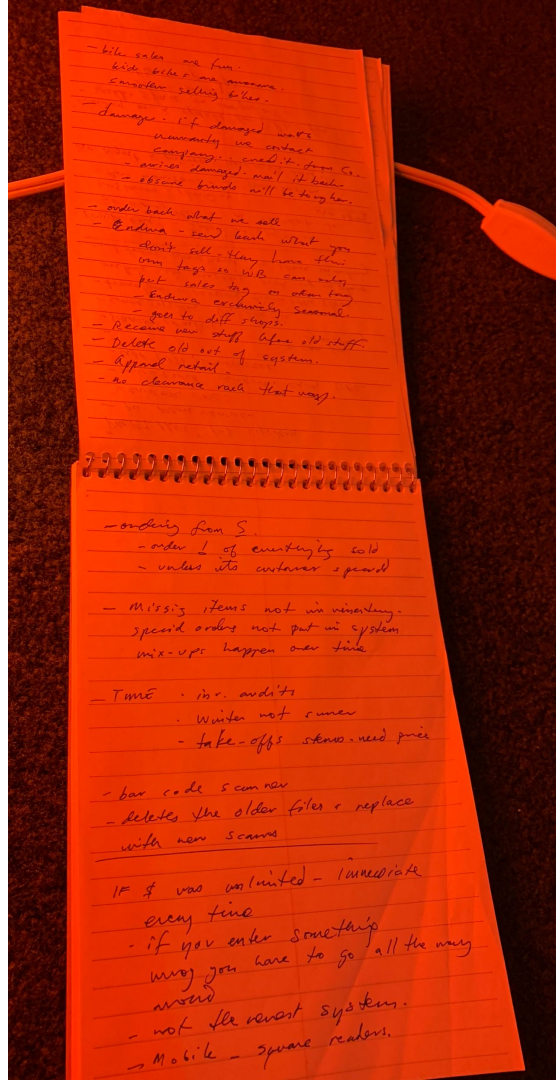 - bike sales are fun.
kids bikes are awesome.
smoother selling bikes.
- damages. if damaged
warranty we contact
company.. credit from Co
arrives damaged - mail it back
- obscure brands will be tougher.
- order back what we sell
- Endura - send back what you
don't sell - they have their
own tags so WB can only
put sales tag on
- Endura exclusively seasonal.
- goes to diff shops.
- Receive new stuff before old stuff.
- Delete old out of system.
- Apparel retail.
- no clearance rack that way.
- ordering from S.
- order 1 of everything sold
- unless its customer special
- Missig items not in
special orders not put in system
mix-ups happen over time
- TIME - inv. audits
- Winter not
- take-offs stems - need price
- bar code scanner
- deletes the older files & replace
with new scans
IF $ was unlimited - Immediate
every time
- if you enter something
wrong you have to go all the way
- not the newest system.
- Mobile - square readers.